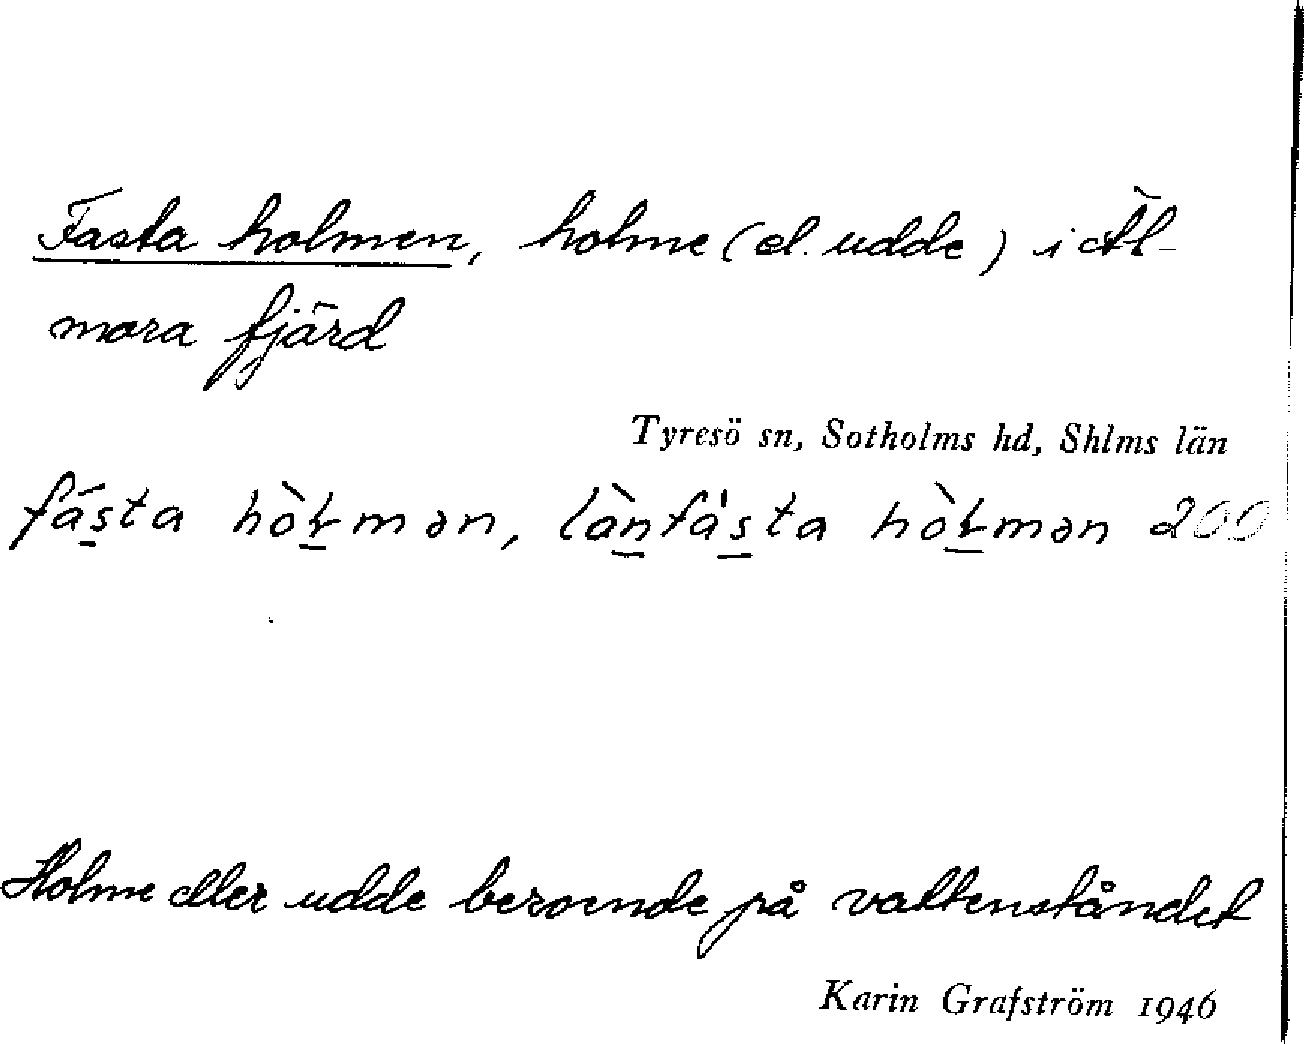 Fasta holmen, holme (el. udde) i Äl-
mora fjärd
Tyresö sn, Sotholms hd, Shlms län
fásta hòɫmən, lànfàsta hòɫmən 200
Holme eller udde beroende på vattenståndet
Karin Grafström 1946